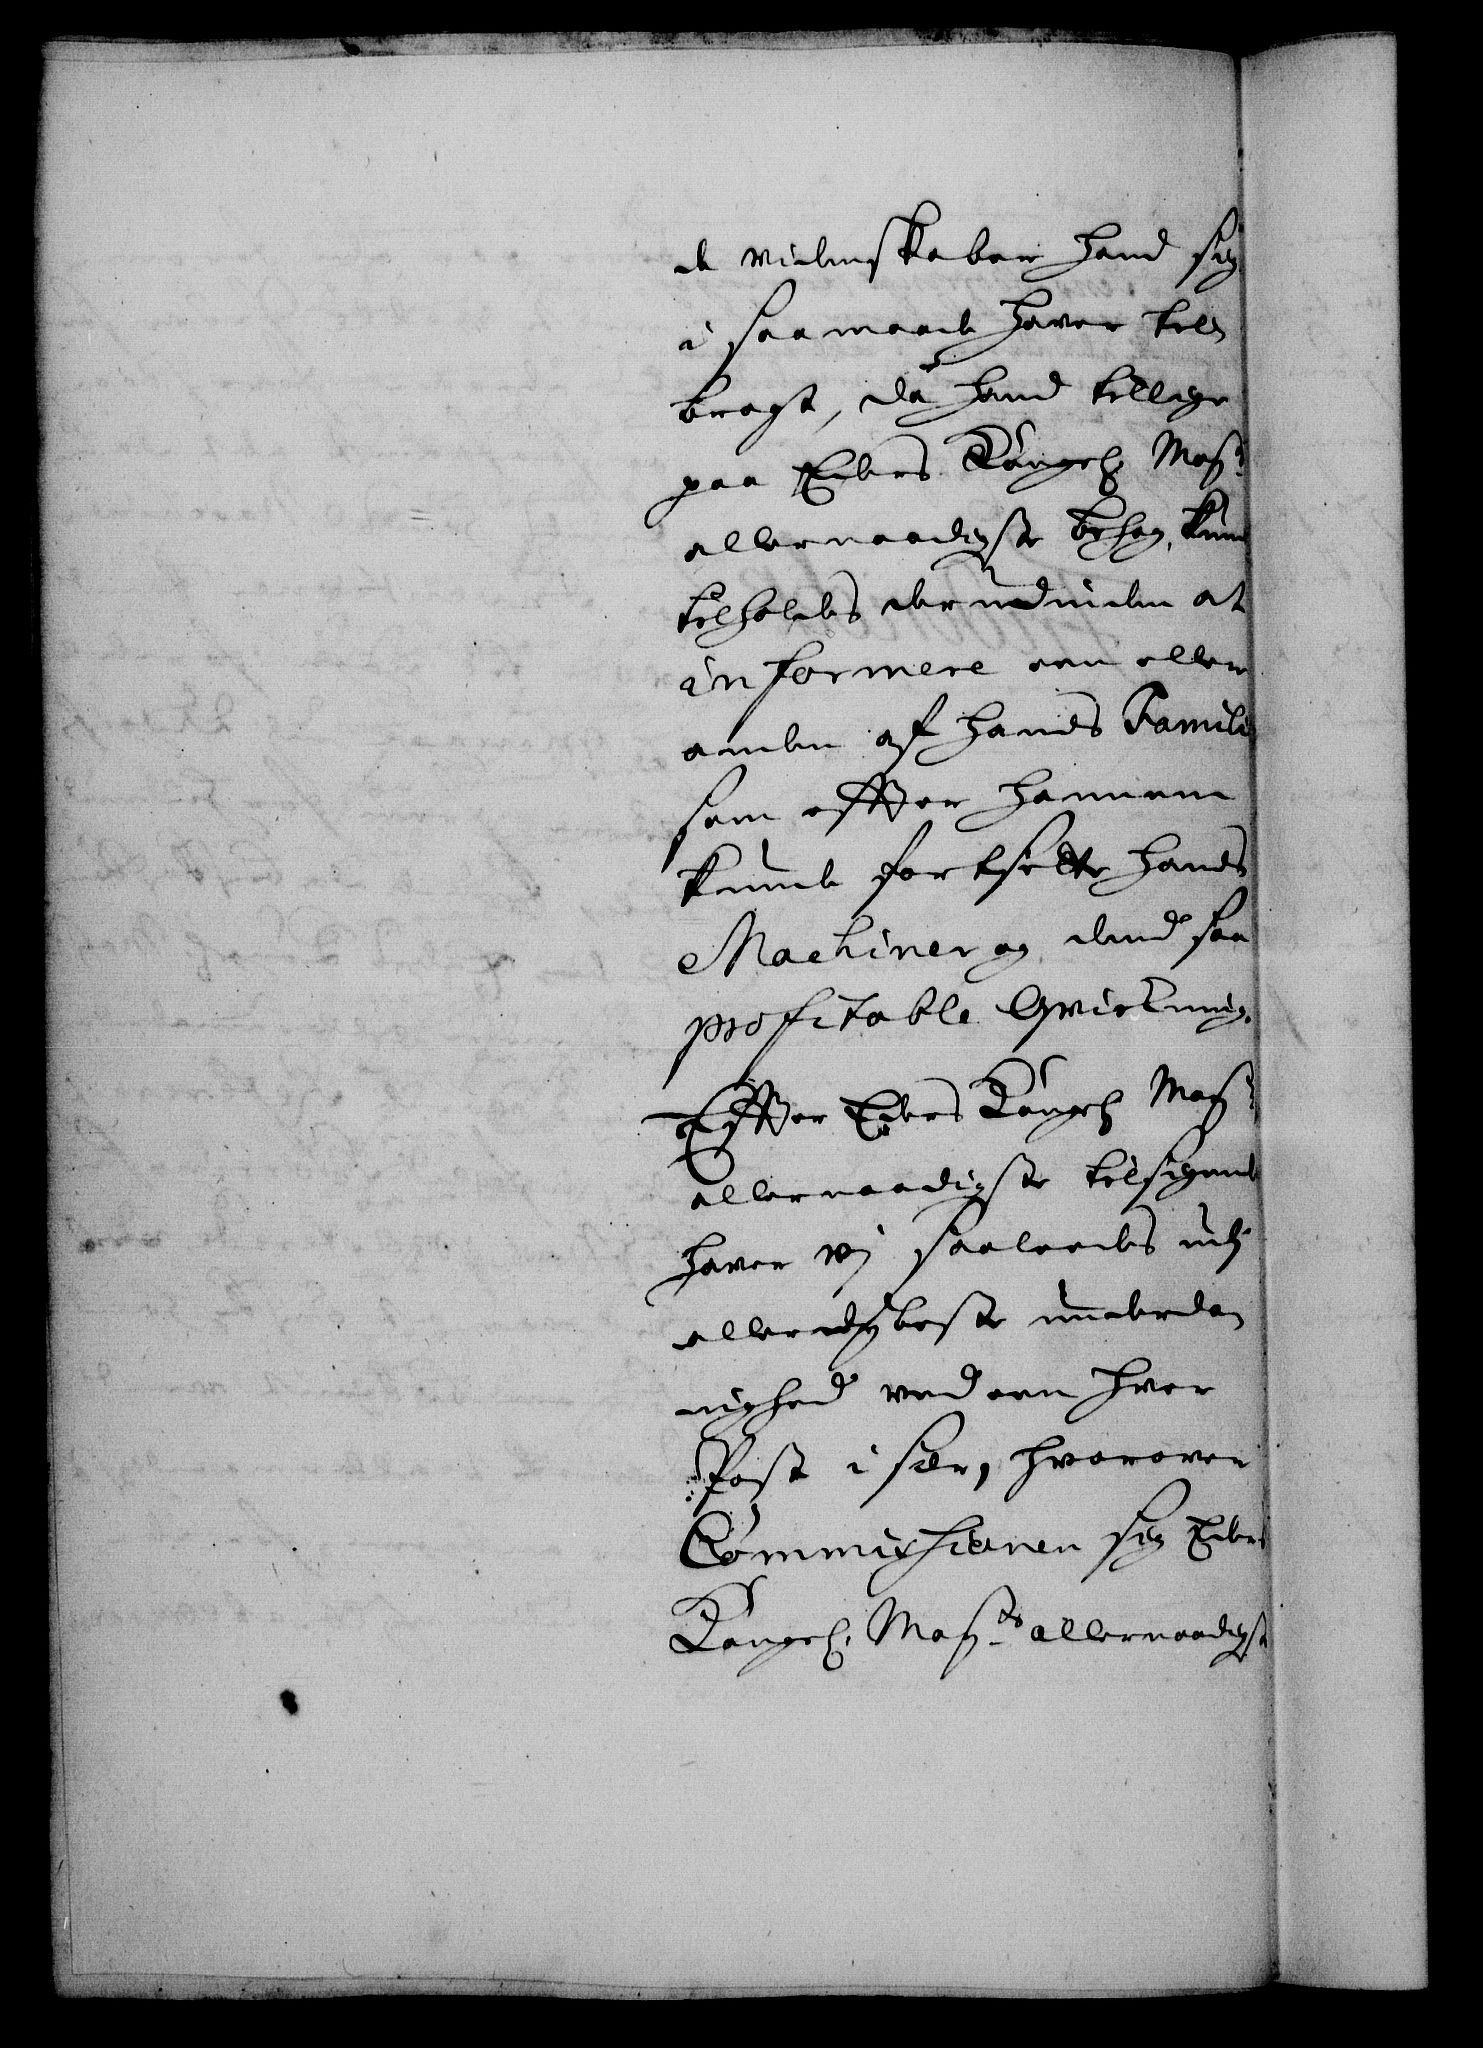 de videnskaber hand sig
i saa maade haver til
bragt, da hand tillige
paa Eders Kongel: Mayts
allernaadigste behag, kunde
tilholdes der udinden at
informere een eller
anden af hands Famili
som effter hannem
kunde fortsette hands
Machiner og dend saa
profitable
Effter Eders Kongel Mayts
allernaadigste tilsigende
haver vj saaledes udj
allerdybeste underdan
nighed ved een hver
Post i sær, hvorover
Commissionen sig Eders
Kongel: Mayts allernaadigst